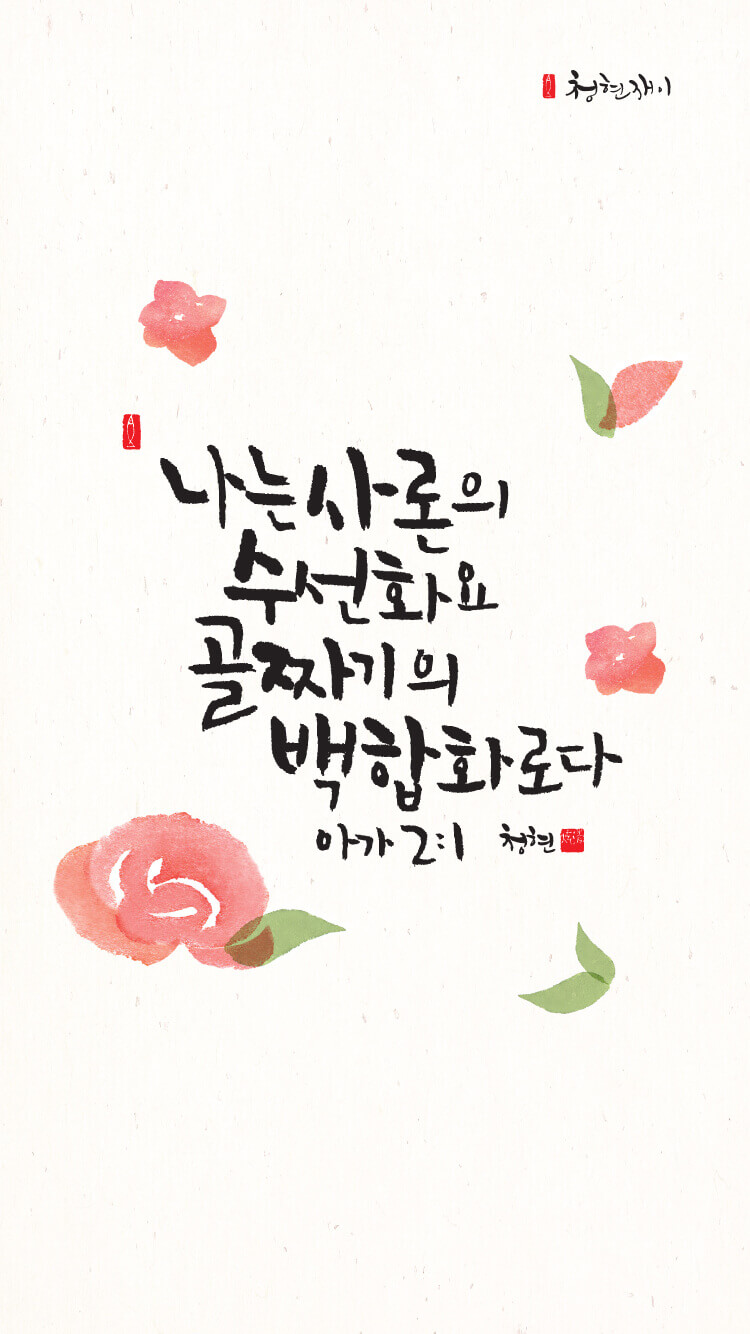 청현재이
나는 사론의
수선화요
골짜기의
백합화로다
아가 2:1 청현